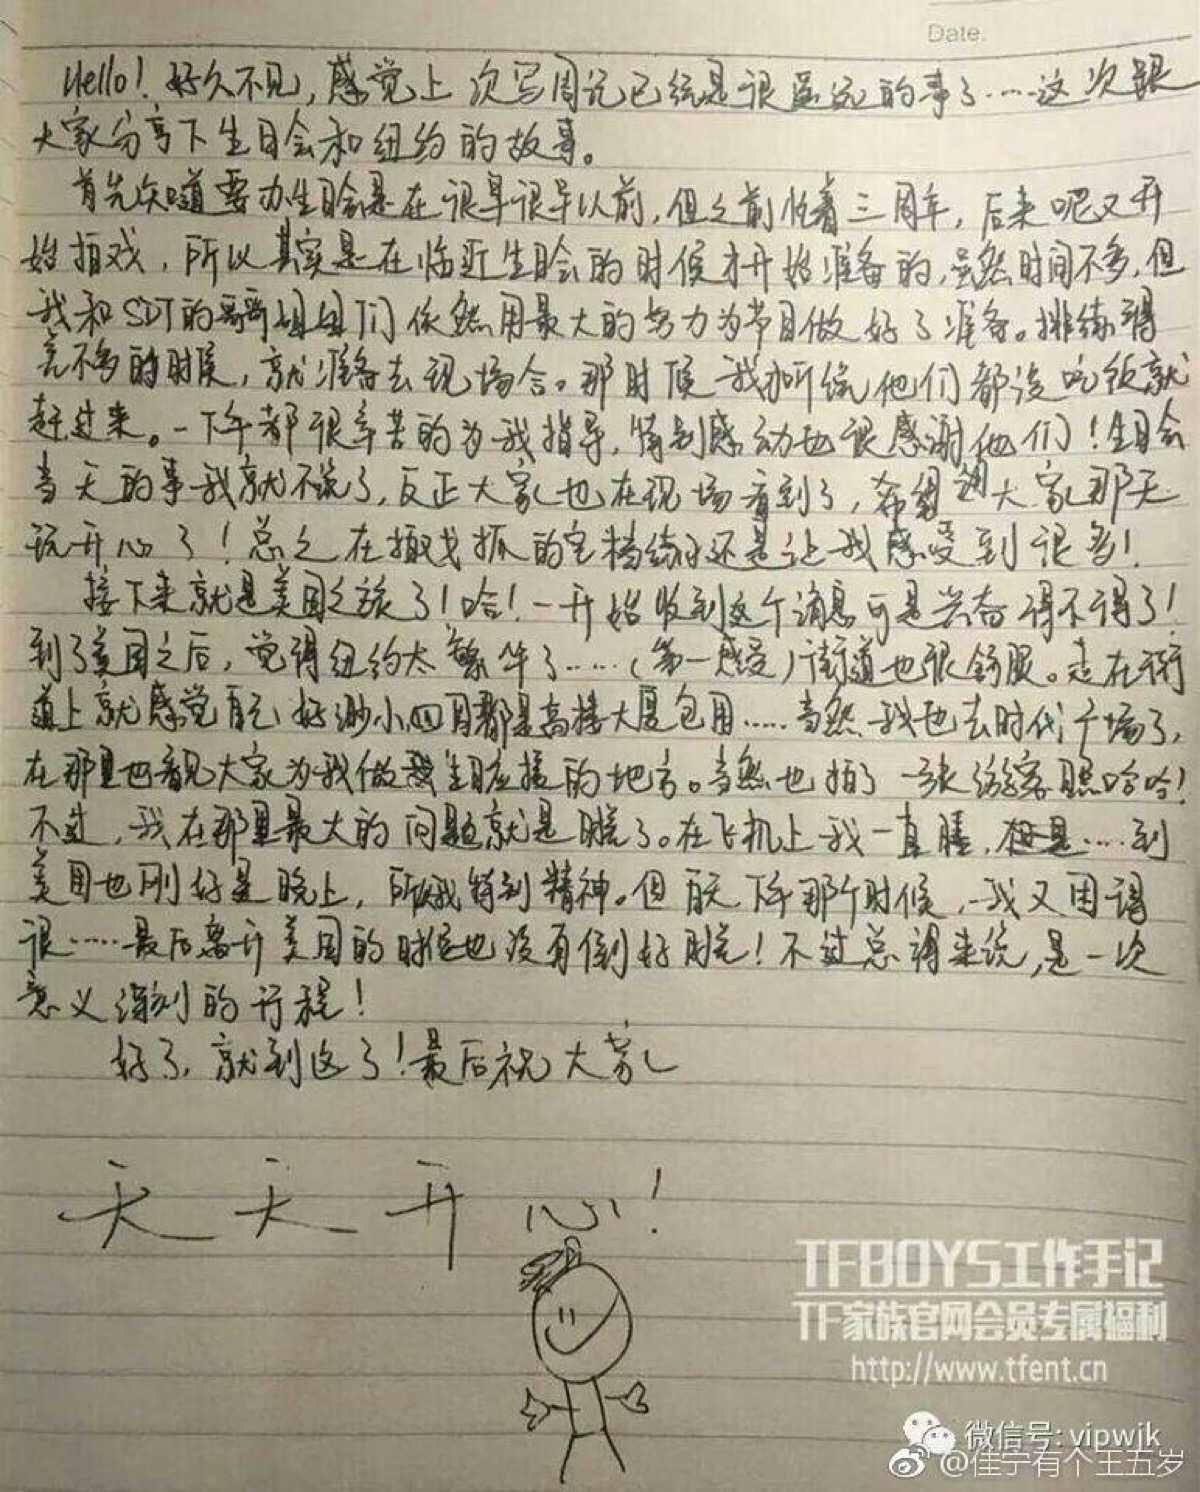 Date.
Hello！好久不见，感觉上次写周记已经是很遥远的事了……这次跟
大家分享下生日会和纽约的故事。
首先知道要办生日会是在很早很早以前，但之前忙着三周年，后来呢又开
始拍戏，所以其实是在临近生日会的时候才开始准备的，虽然时间不多，但
我和SDT的哥哥姐姐们依然用最大的努力为节目做好了准备。排练得
差不多的时候，就准备去现场合。那时候我听说他们都没吃饭就
赶过来。一下午都很辛苦的为我指导，特别感动也很感谢他们！生日会
当天的事我就不说了，反正大家也在现场看到了，希望大家那天
玩开心了！总之在拍戏抓的空档练习还是让我感受到很多！
接下来就是美国之旅了！哈！一开始收到这个消息可是兴奋得不得了！
到了美国之后，觉得纽约太繁华了……（第一感受）街道也很舒服。走在街
道上就感觉自己好渺小四周都是高楼大厦包围……当然我也去时代广场了，
在那里也看见大家为我做生日应援的地方。当然也拍了一张游客照哈哈！
不过，我在那里最大的问题就是时差了。在飞机上我一直睡，但是……到
美国也刚好是晚上，所以我特别精神。但白天下午那个时候，我又困得
很……最后离开美国的时候也没有倒好时差！不过总得来说，是一次
意义深刻的行程！
好了，就到这了！最后祝大家
天天开心！
TFBOYS工作手记
TF家族官网会员专属福利
http://www.tfent.cn
微信号: vipwjk
@佳宁有个王五岁